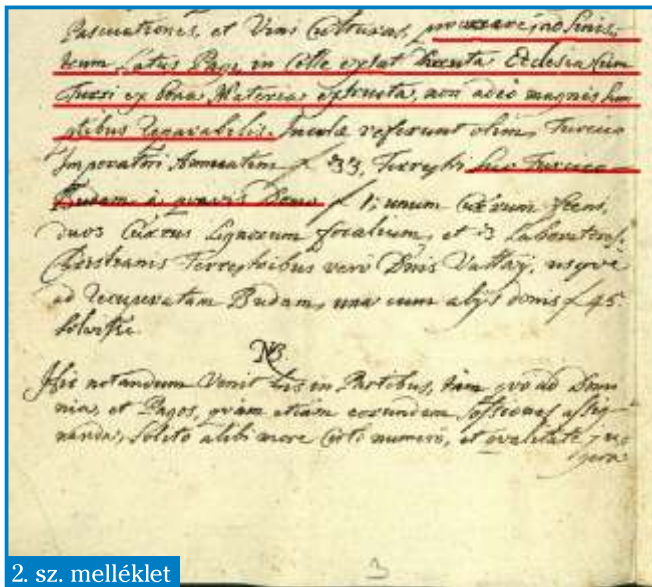 Pascuationes, et Vini Culturas, procurare, ad Sinis-
trum Latus Pagi, in Colle extat Erecta Ecclesia cum
Turri ex bona Materia extructa, non adeo magnis Sum
ptibus reparabilis. Incolæ referunt olim, Turcico
Imperatori Annuatim f 33, Terrestri suo Turcico
Budam à quavis Domo f 1, unum Currum foeni,
duos Currus Lignorum focalium, et 3 Laboratores,
Christianis Terrestribus verò Dnis Vattaÿ, usque
ad recuperatam Budam, una cum alijs donis f 45.
Solvisse.
NB.
Hic notandum venit his in Partibus, tam quo ad Domi
nia, et Pagos, quam etiam eorundem Sessiones assig-
nanda, Solito alibi more Certo numero, et qualitate
3
2. sz. melléklet